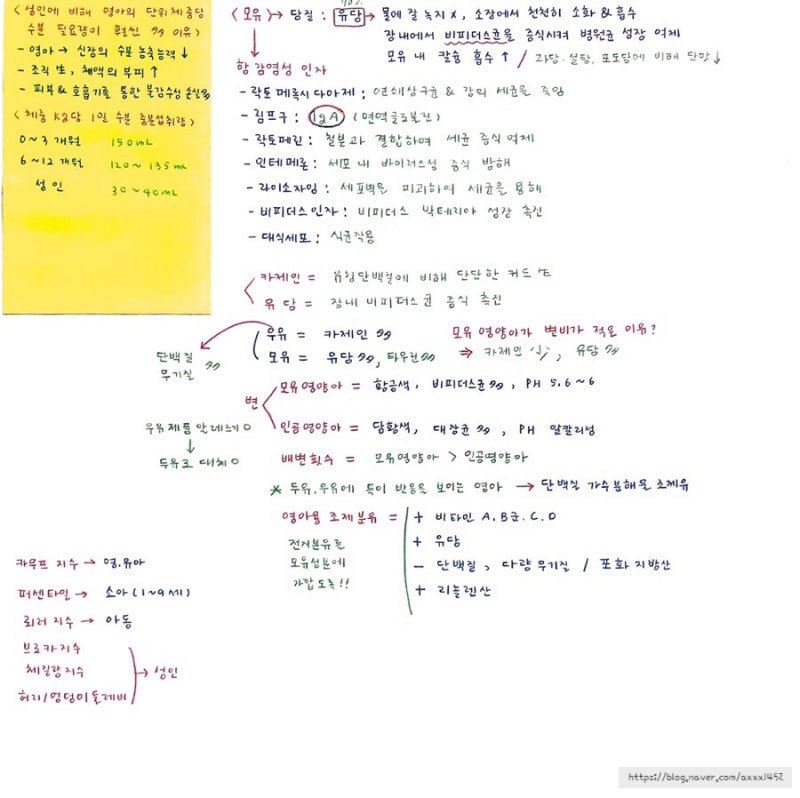 〈성인에 비해 영아의 단위체중당
수분 필요량이 훨씬 多 이유〉
- 영아 → 신장의 수분 농축능력↓
- 조직 生, 체액의 부피↑
- 피부 & 호흡기를 통한 불감수성 손실 多
〈체중 kg당 1일 수분 충분섭취량〉
0~3 개월 150mL
6~12 개월 120~135mL
성인 30~40mL
〈모유〉→ 당질 : 유당 → 물에 잘 녹지 x, 소장에서 천천히 소화 & 흡수
장내에서 비피더스균을 증식시켜 병원균 성장 억제
모유 내 칼슘 흡수↑ / 과당, 설탕, 포도당에 비해 단맛↓
항 감염성 인자
- 락토 페록시다아제 : 연쇄상구균 & 장의 세균을 죽임
- 림프구 : IgA (면역글로불린)
- 락토페린 : 철분과 결합하여 세균 증식 억제
- 인테페론 : 세포 내 바이러스성 증식 방해
- 라이소자임 : 세포벽을 파괴하여 세균을 용해
- 비피더스인자 : 비피더스 박테리아 성장 촉진
- 대식세포 : 식균작용
카제인 = 유청단백질에 비해 단단한 커드 生
유당 = 장내 비피더스균 증식 촉진
우유 = 카제인 多
모유 = 유당 多, 타우린 多
단백질 多
무기질
모유 영양아가 변비가 적은 이유?
⇒ 카제인 少, 유당 多
변
모유영양아 = 황금색, 비피더스균 多, PH 5.6~6
인공영양아 = 담황색, 대장균 多, PH 알칼리성
배변횟수 = 모유영양아 > 인공영양아
우유제품 알레르기 O
↓
두유로 대체 O
* 두유, 우유에 특이 반응을 보이는 영아 → 단백질 가수분해물 조제유
영아용 조제분유 =
전지분유를
모유성분에
가깝도록!!
+ 비타민 A, B군, C, D
+ 유당
- 단백질, 다량무기질 / 포화지방산
+ 리놀렌산
카우프 지수 → 영.유아
퍼센타일 → 소아 (1~9세)
뢰러 지수 → 아동
브로카지수
체질량지수 → 성인
허리/엉덩이둘레비
https://blog.naver.com/axxx1452